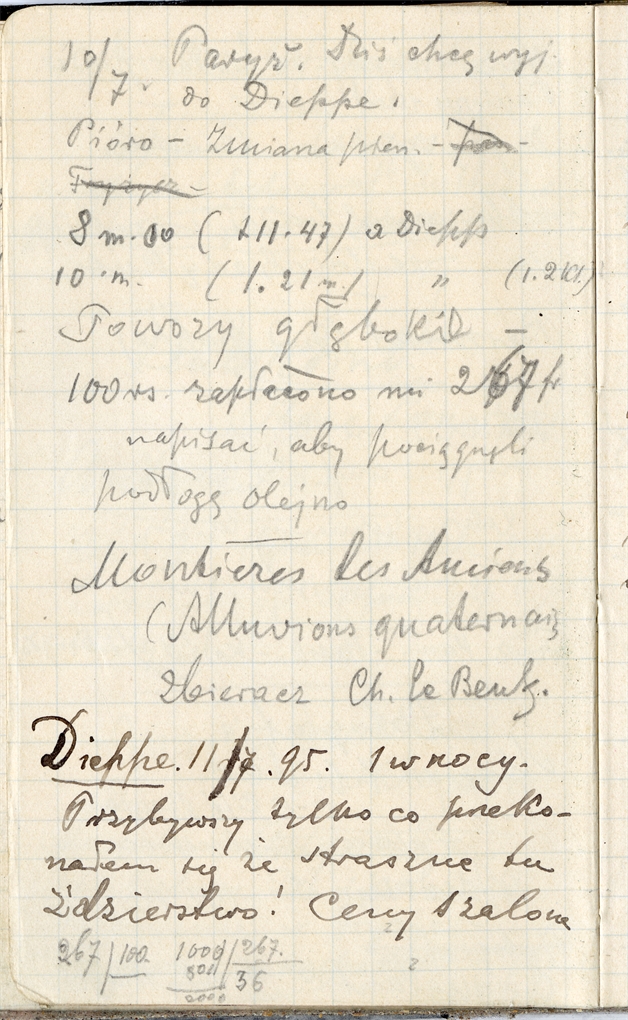 10/7. Paryż. Dziś chcę wyj
do Dieppe.
Pióro – Zmiana pien. –
8 m. 00 ( +11.47) a Diepp
10 m. (1.21 m) " (1.2 kl.)
Towozy głębokie –
100 rs. zapłacono mi 267 fr
napisać, aby pociągnęli
podłogę olejno
Montières les Amiens
(Alluvions quaternair
zbieracz Ch. le
Dieppe. 11/7. 95. 1 w nocy.
Przybywszy tylko co przeko-
nałem się że straszne tu
ździerstwo! Ceny szalone
267/100 1000/267.
801 36
2000